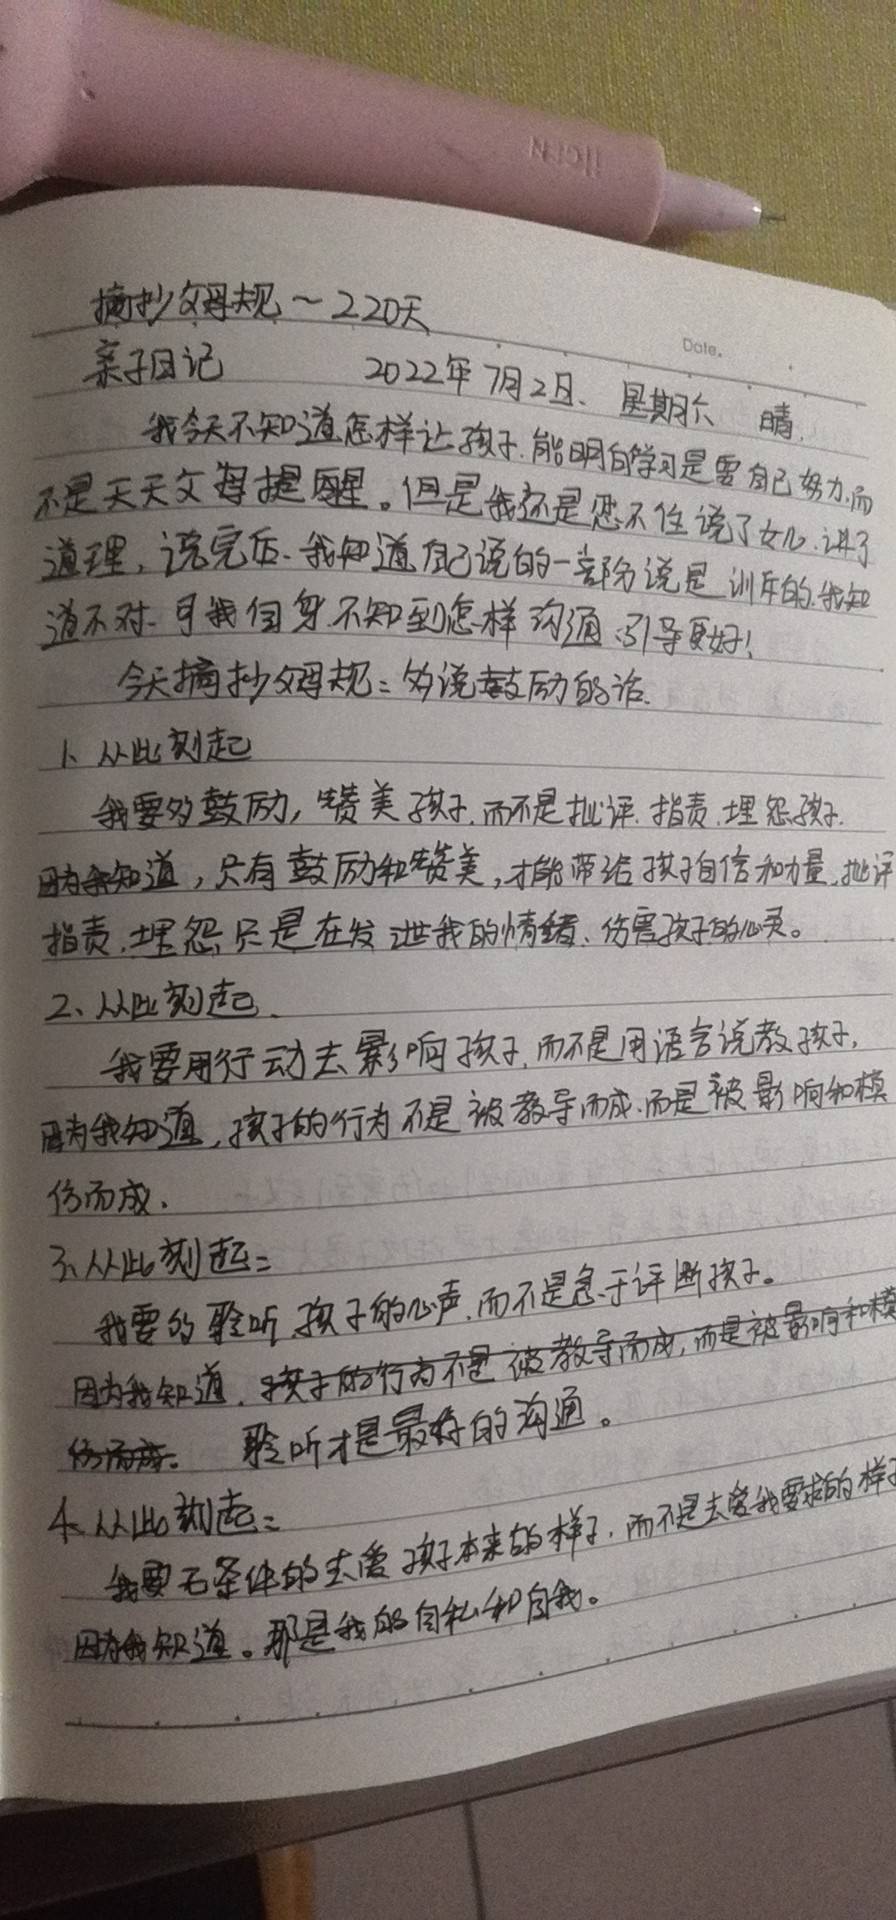 摘抄父母规～220天
Date.
亲子日记 2022年7月2日、星期六 晴.
我今天不知道怎样让孩子.能明白学习是要自己努力.而
不是天天父母提醒。但是我还是忍不住说了女儿.讲了
道理，说完后.我知道自己说的一部分说是训斥的.我知
道不对.可我自身.不知到怎样沟通.引导更好！
今天摘抄父母规：多说鼓励的话.
1、从此刻起
我要多鼓励，赞美孩子.而不是批评.指责.埋怨孩子.
因为我知道，只有鼓励和赞美，才能带给孩子自信和力量.批评
指责.埋怨只是在发泄我的情绪、伤害孩子的心灵。
2、从此刻起.
我要用行动去影响孩子.而不是用语言说教孩子，
因为我知道，孩子的行为不是被教导而成.而是被影响和模
仿而成.
3、从此刻起：
我要多聆听孩子的心声.而不是急于评断孩子。
因为我知道.孩子的行为不是被教导而成，而是被影响和模
仿而成. 聆听才是最好的沟通。
4.从此刻起：
我要无条件的去爱孩子本来的样子.而不是去爱我要求的样子
因为我知道。那是我的自私和自我。